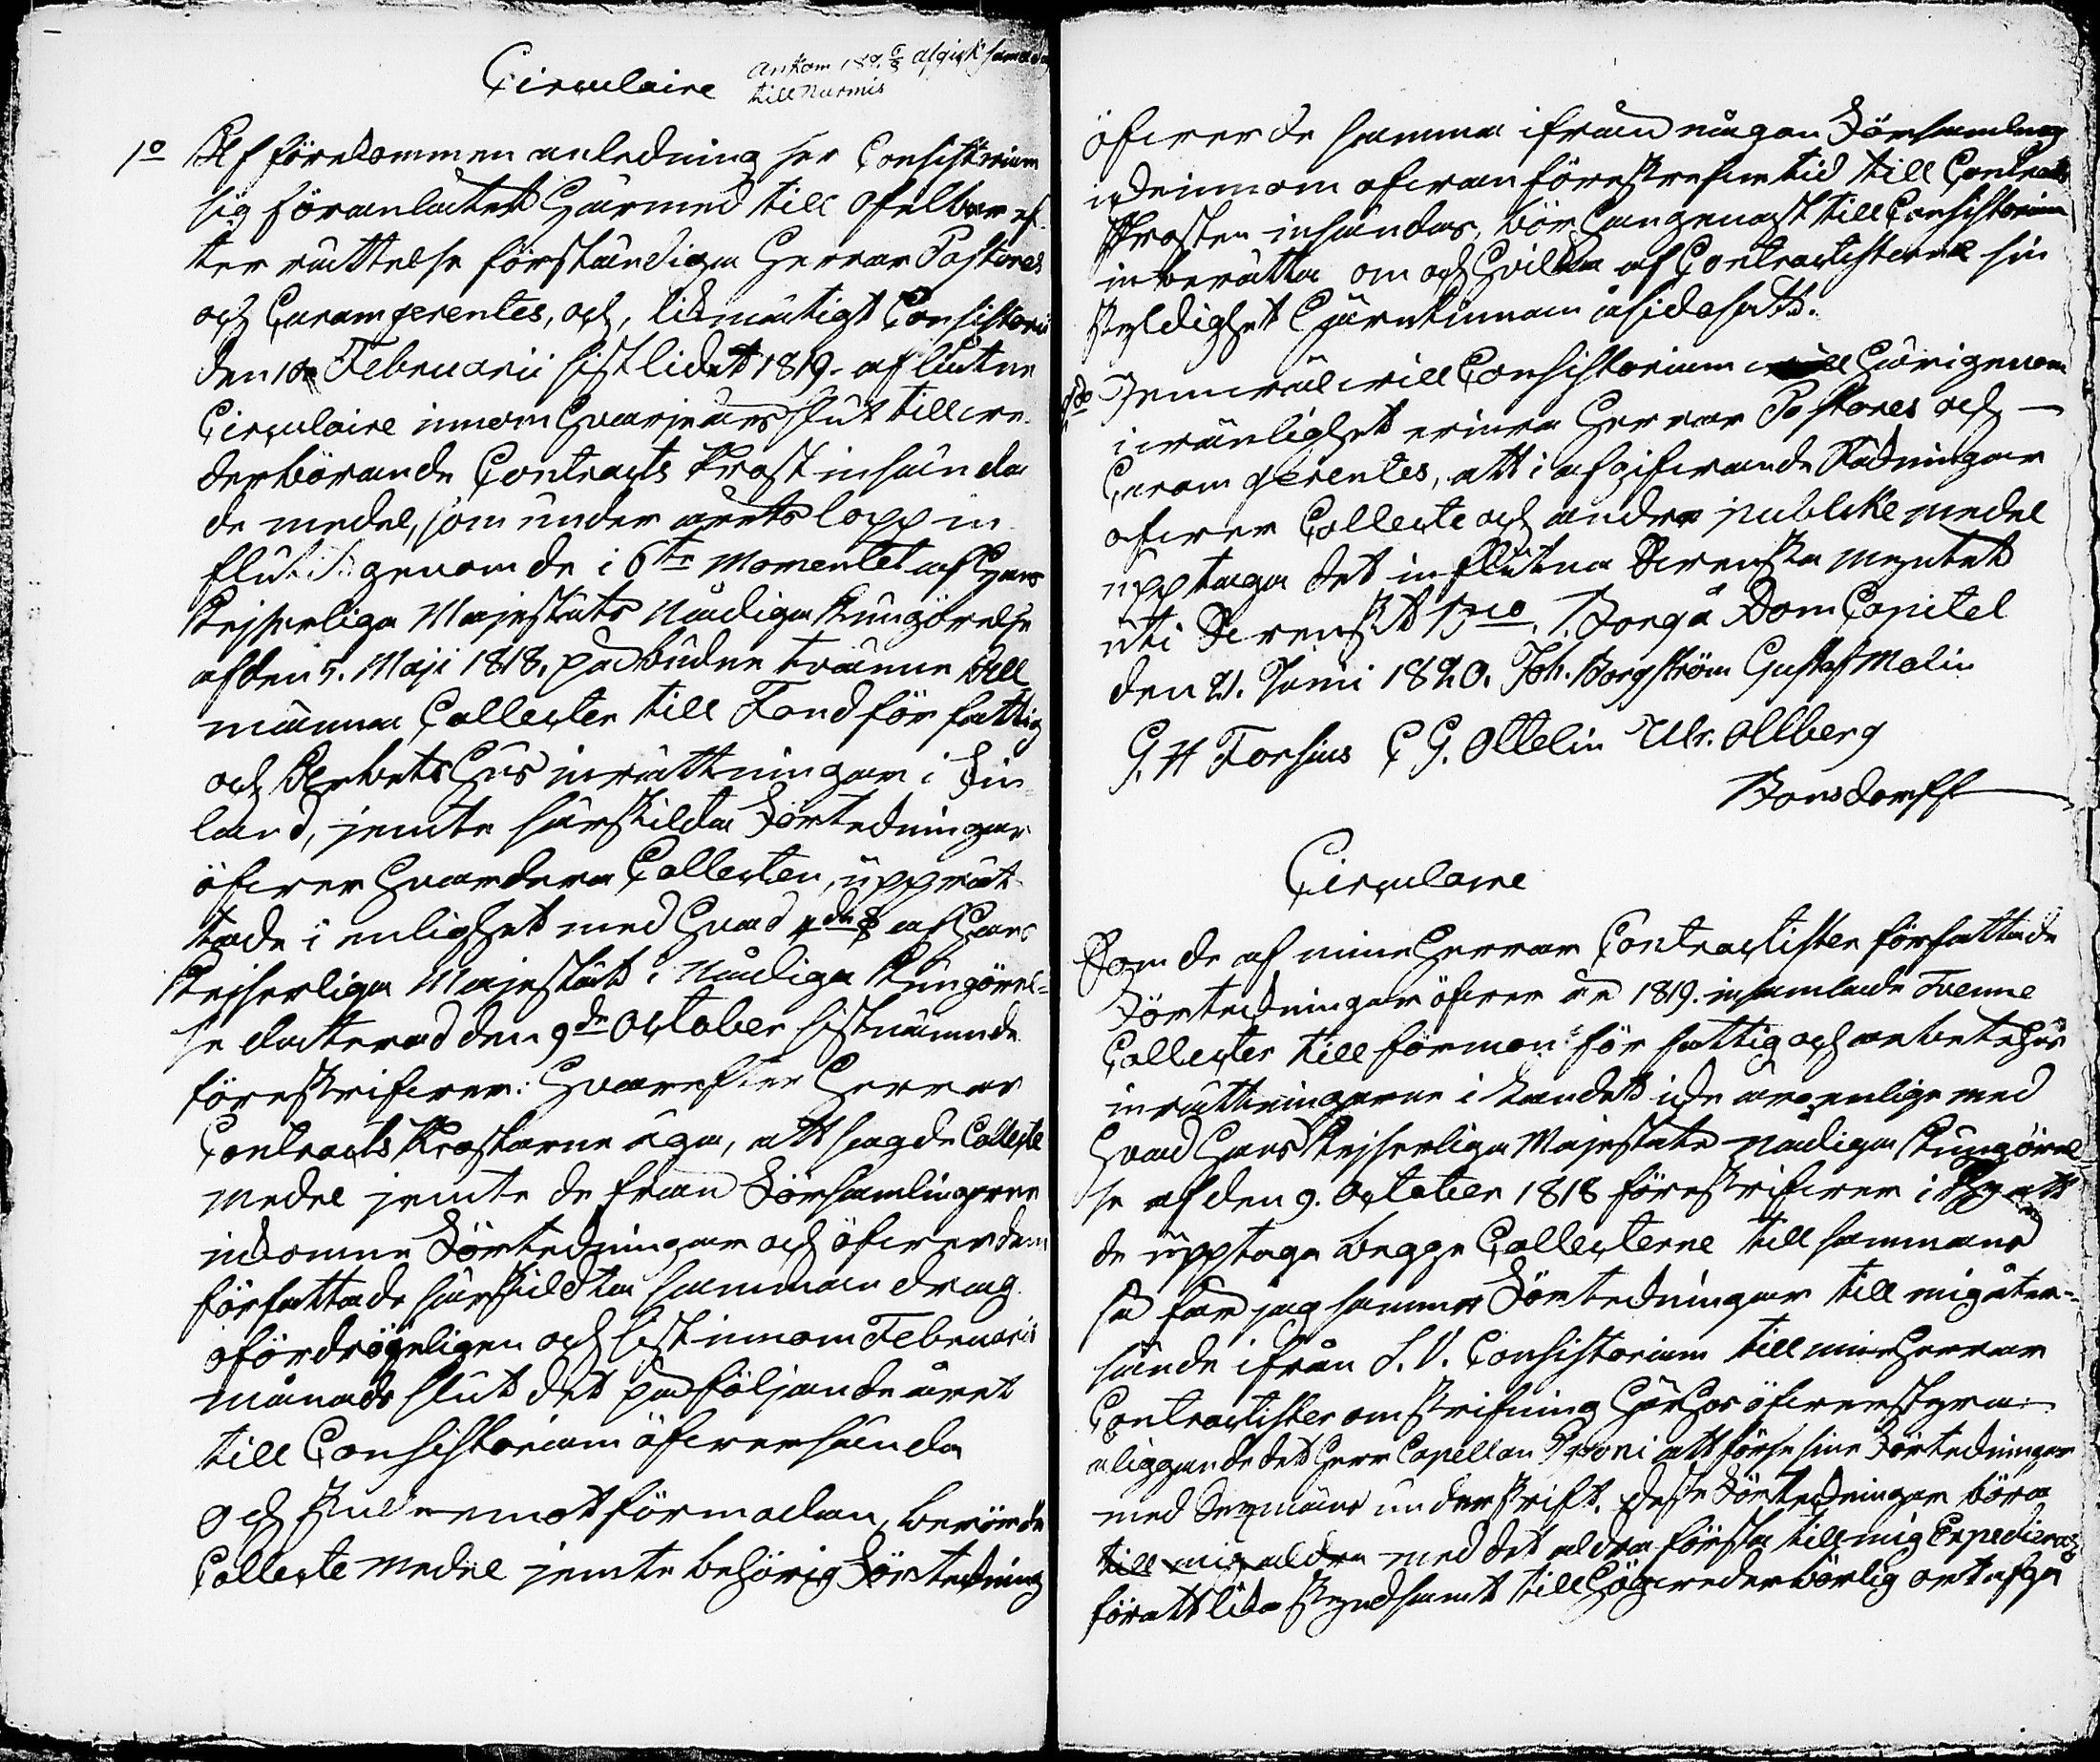 Circulaire
Ankom 18 6/8 afgick samma dag
till Nurmis
1o Af förekommen anledning ser Consistorium
sig föranlåtet härmed till ofelbar ef-
ter rättelse förständiga Herrar Pastores
och Curam gerentes, och, likmätigt Consistorii
den 10 Februarii sistlidet 1819. aflåtne
Circulaire innom hvarje års slut till ve-
derbörande Contracts Prost insända
de medel, som under årets lopp in-
flutit genom de i 6te Momentet af Hans
Kejserliga Majestäts Nådiga Kungörelse
af den 5. Maji 1818, påbudne tvänne all-
männa Collecter till Fond för fattig
och Arbets Hus inrättningar i Fin-
land, jemte särskilda Förtekningar
öfver hvardera Collecten, upprät-
tade i enlighet med hvad 4de § af Hans
Kejserliga Majestäts Nådiga Kungörel-
se daterad den 9de October sistnämnde
föreskrifver: Hvarefter Herrar
Contracts Prostarne äga, att sagde Collecte
medel jemte de från Församlingarne
inkomne Förtekningar och öfver dem
författade särskildta sammandrag
ofördröjeligen och sist innom Februarii
månads slut det på följande året
till Consistorium öfversända
och skulle emot förmodan, berörde
Collecte medel jemte behörig Förtekning
öfver de samma ifrån någon Församling
icke innom ofvan föreskrefne tid till Contracts
Prosten insändas, bör han genast till Consistorium
inberätta om och hvilka af Contractisterne sin
skyldighet härutinnan åsidosatt.
2do Jemväl vill Consistorium härigenom
i vänlighet erinra Herrar Pastores och
Curam gerentes, att i afgifvande Räkningar
öfver Collecte och andra publike medel
upptaga det influtna Svenska myntet
uti Svenskt Bco. Borgå Dom Capitel
den 21. Junii 1820. Joh. Borgström Gustaf Molin
G. H Forsius C G. Ottelin Ulr. Ahlberg
Bonsdorff
Circulaire
Som de af mine Herrar Contractister författade
Förtekningar öfver år 1819. insamlade Tvenne
Collecter till förmon för fattig och arbetshus
inrättningarne i Landet icke äro enlige med
hvad Hans Kejserliga Majestäts nådiga Kungörel-
se af den 9. October 1818 föreskrifver i thy att
de upptaga begge Collecterne till sammans
så får jag samma Förtekningar till mig åter-
sände ifrån S. V. Consistorium till mine Herrar
Contractister omskrifning härhos öfverstyra
åliggande det Herr Capellan Poponi att förse sine Förtekningar
med Sexmäns underskrift. Desse Förtekningar böra
till mig aldra med det aldra första till mig Expedieras
för att lika skyndsamt till högvederbörlig ort afgå